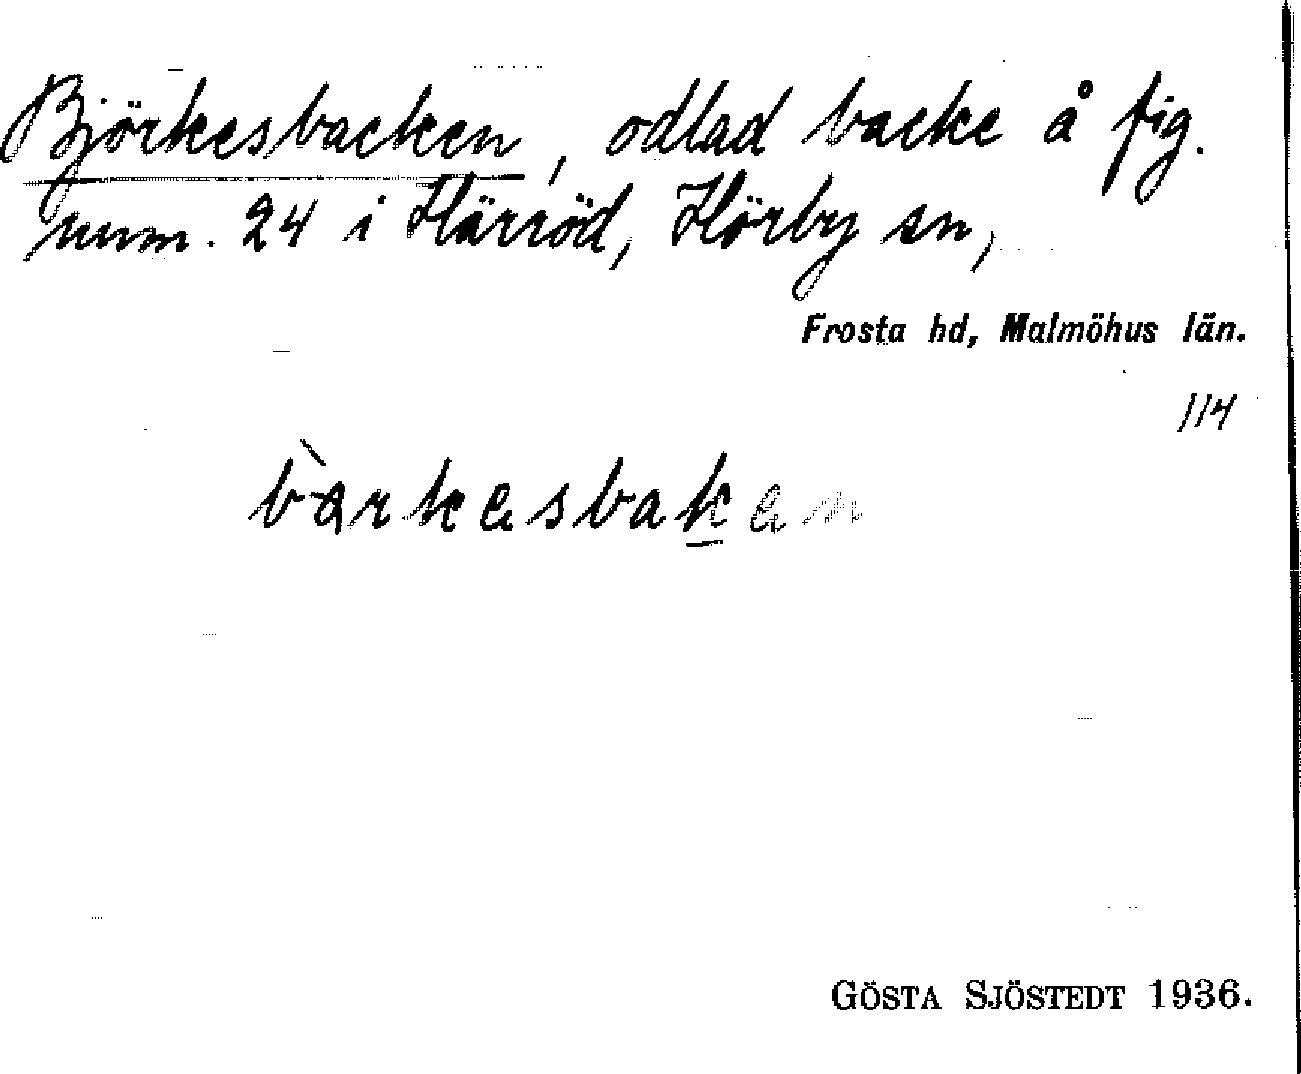 Björkesbacken, odlad backe å fig.
num. 24 i Härröd, Hörby sn,
Frosta hd, Malmöhus län.
114
bàrkesbaken
GÖSTA SJÖSTEDT 1936.